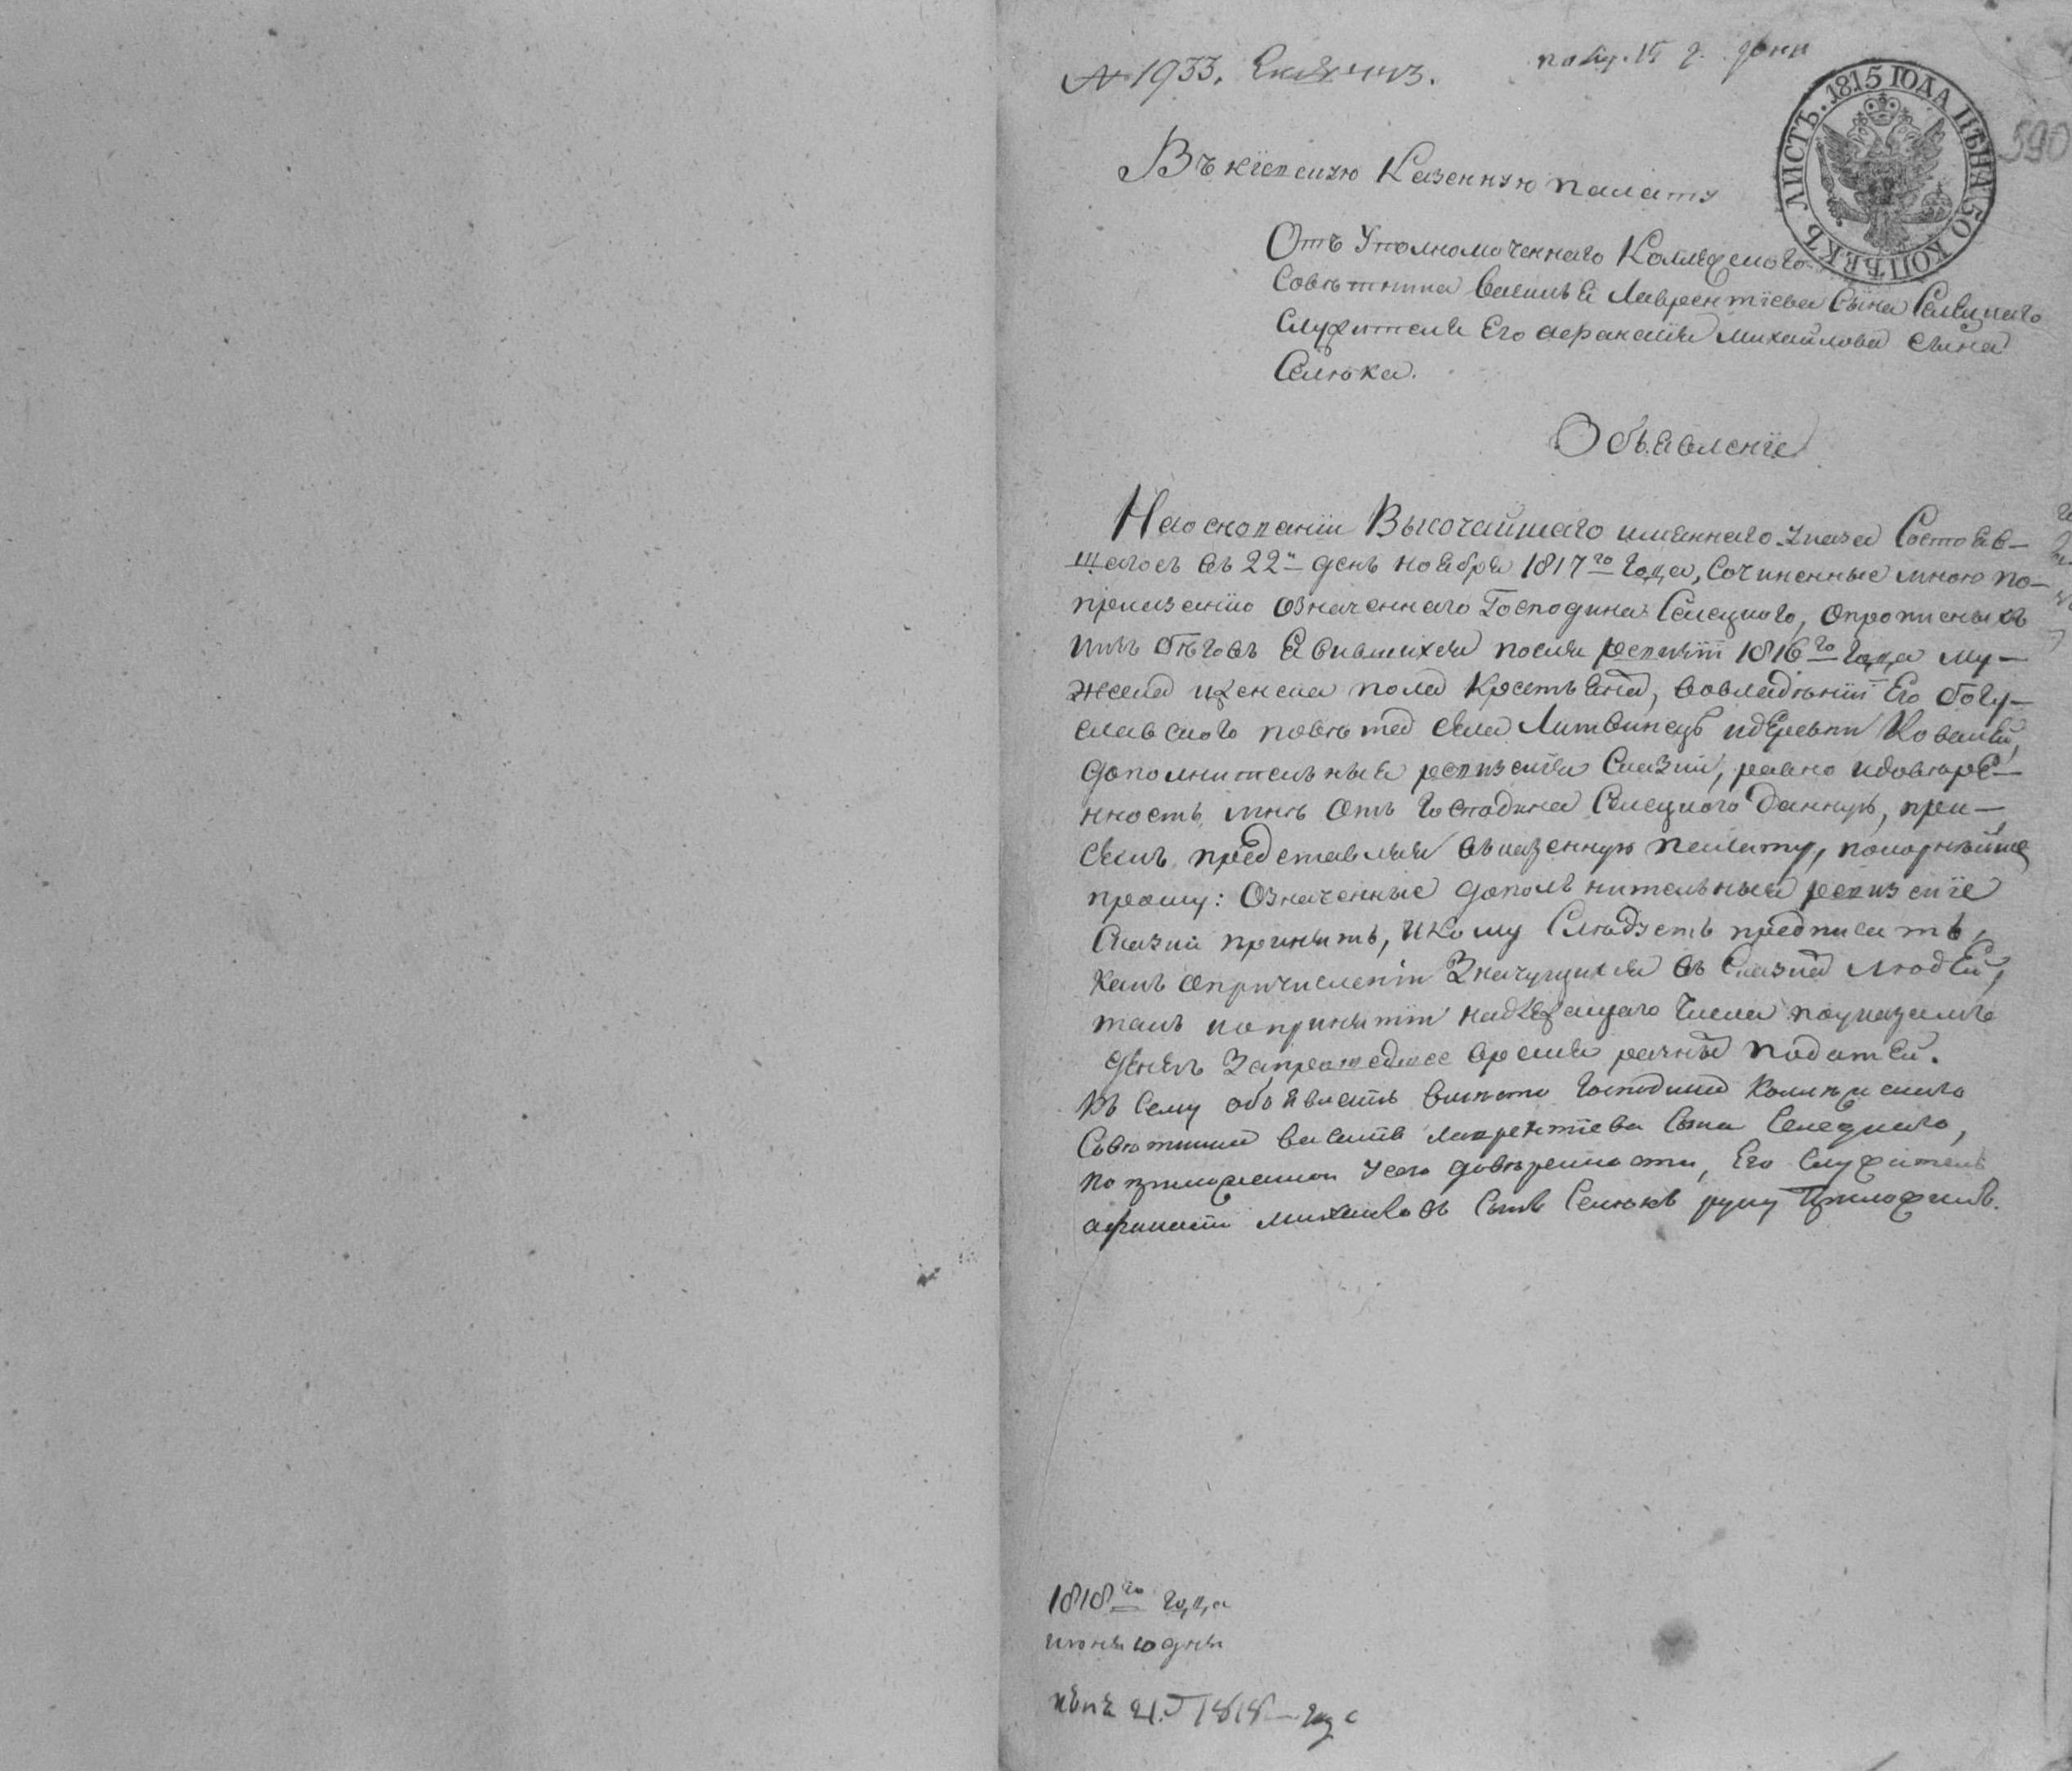 № 1933.
ЛИСТЪ. 1815 ГОДА ЦѢНА 50 КОПѢЕКЪ
590
Въ кіевскую Казенную палату
Отъ Уполномоченнаго Коллежскаго
Совѣтника Василья Лаврентіева Сына Селецкаго
Служителя Его афанасия Михайлова сына
Селюка.
Объявленіе
На основаніи Высочайшаго имяннаго указа Состояв-
шагось въ 22й день ноября 1817го года, Сочиненные мною по
приказанію означеннаго Господина Селецкого, о прописныхъ
изъ бѣговъ явившихся после ревизіи 1816го года му-
жеска и женска пола крестьяна, во владѣніи Его богу-
славского повѣта села Литвинецъ и дЕревни Ковалей,
дополнительныя ревизския Сказки, равно и доверѣ-
нность мнѣ отъ Господина Селецкого данную, при
семъ представляя въ казенную палату, покорнѣйше
прошу: Означенные дополнительныя ревизские
Сказки принять, и кому Слѣдуетъ предписать,
какъ опричислении Значущихся въ Сказка людей,
такъ и о принятіи надлежащаго числа по указамъ
денегъ За прошедшее время разных податей.
Къ Сему объявленію вместо Господина Коллежскаго
Совѣтника василия лаврентіева Сына Селецкаго,
по приложенной у сего довѣренности, Его Служитель
афанасий михайловъ Сынъ Селюкъ руку приложилъ.
1818го года
июня 10 дня